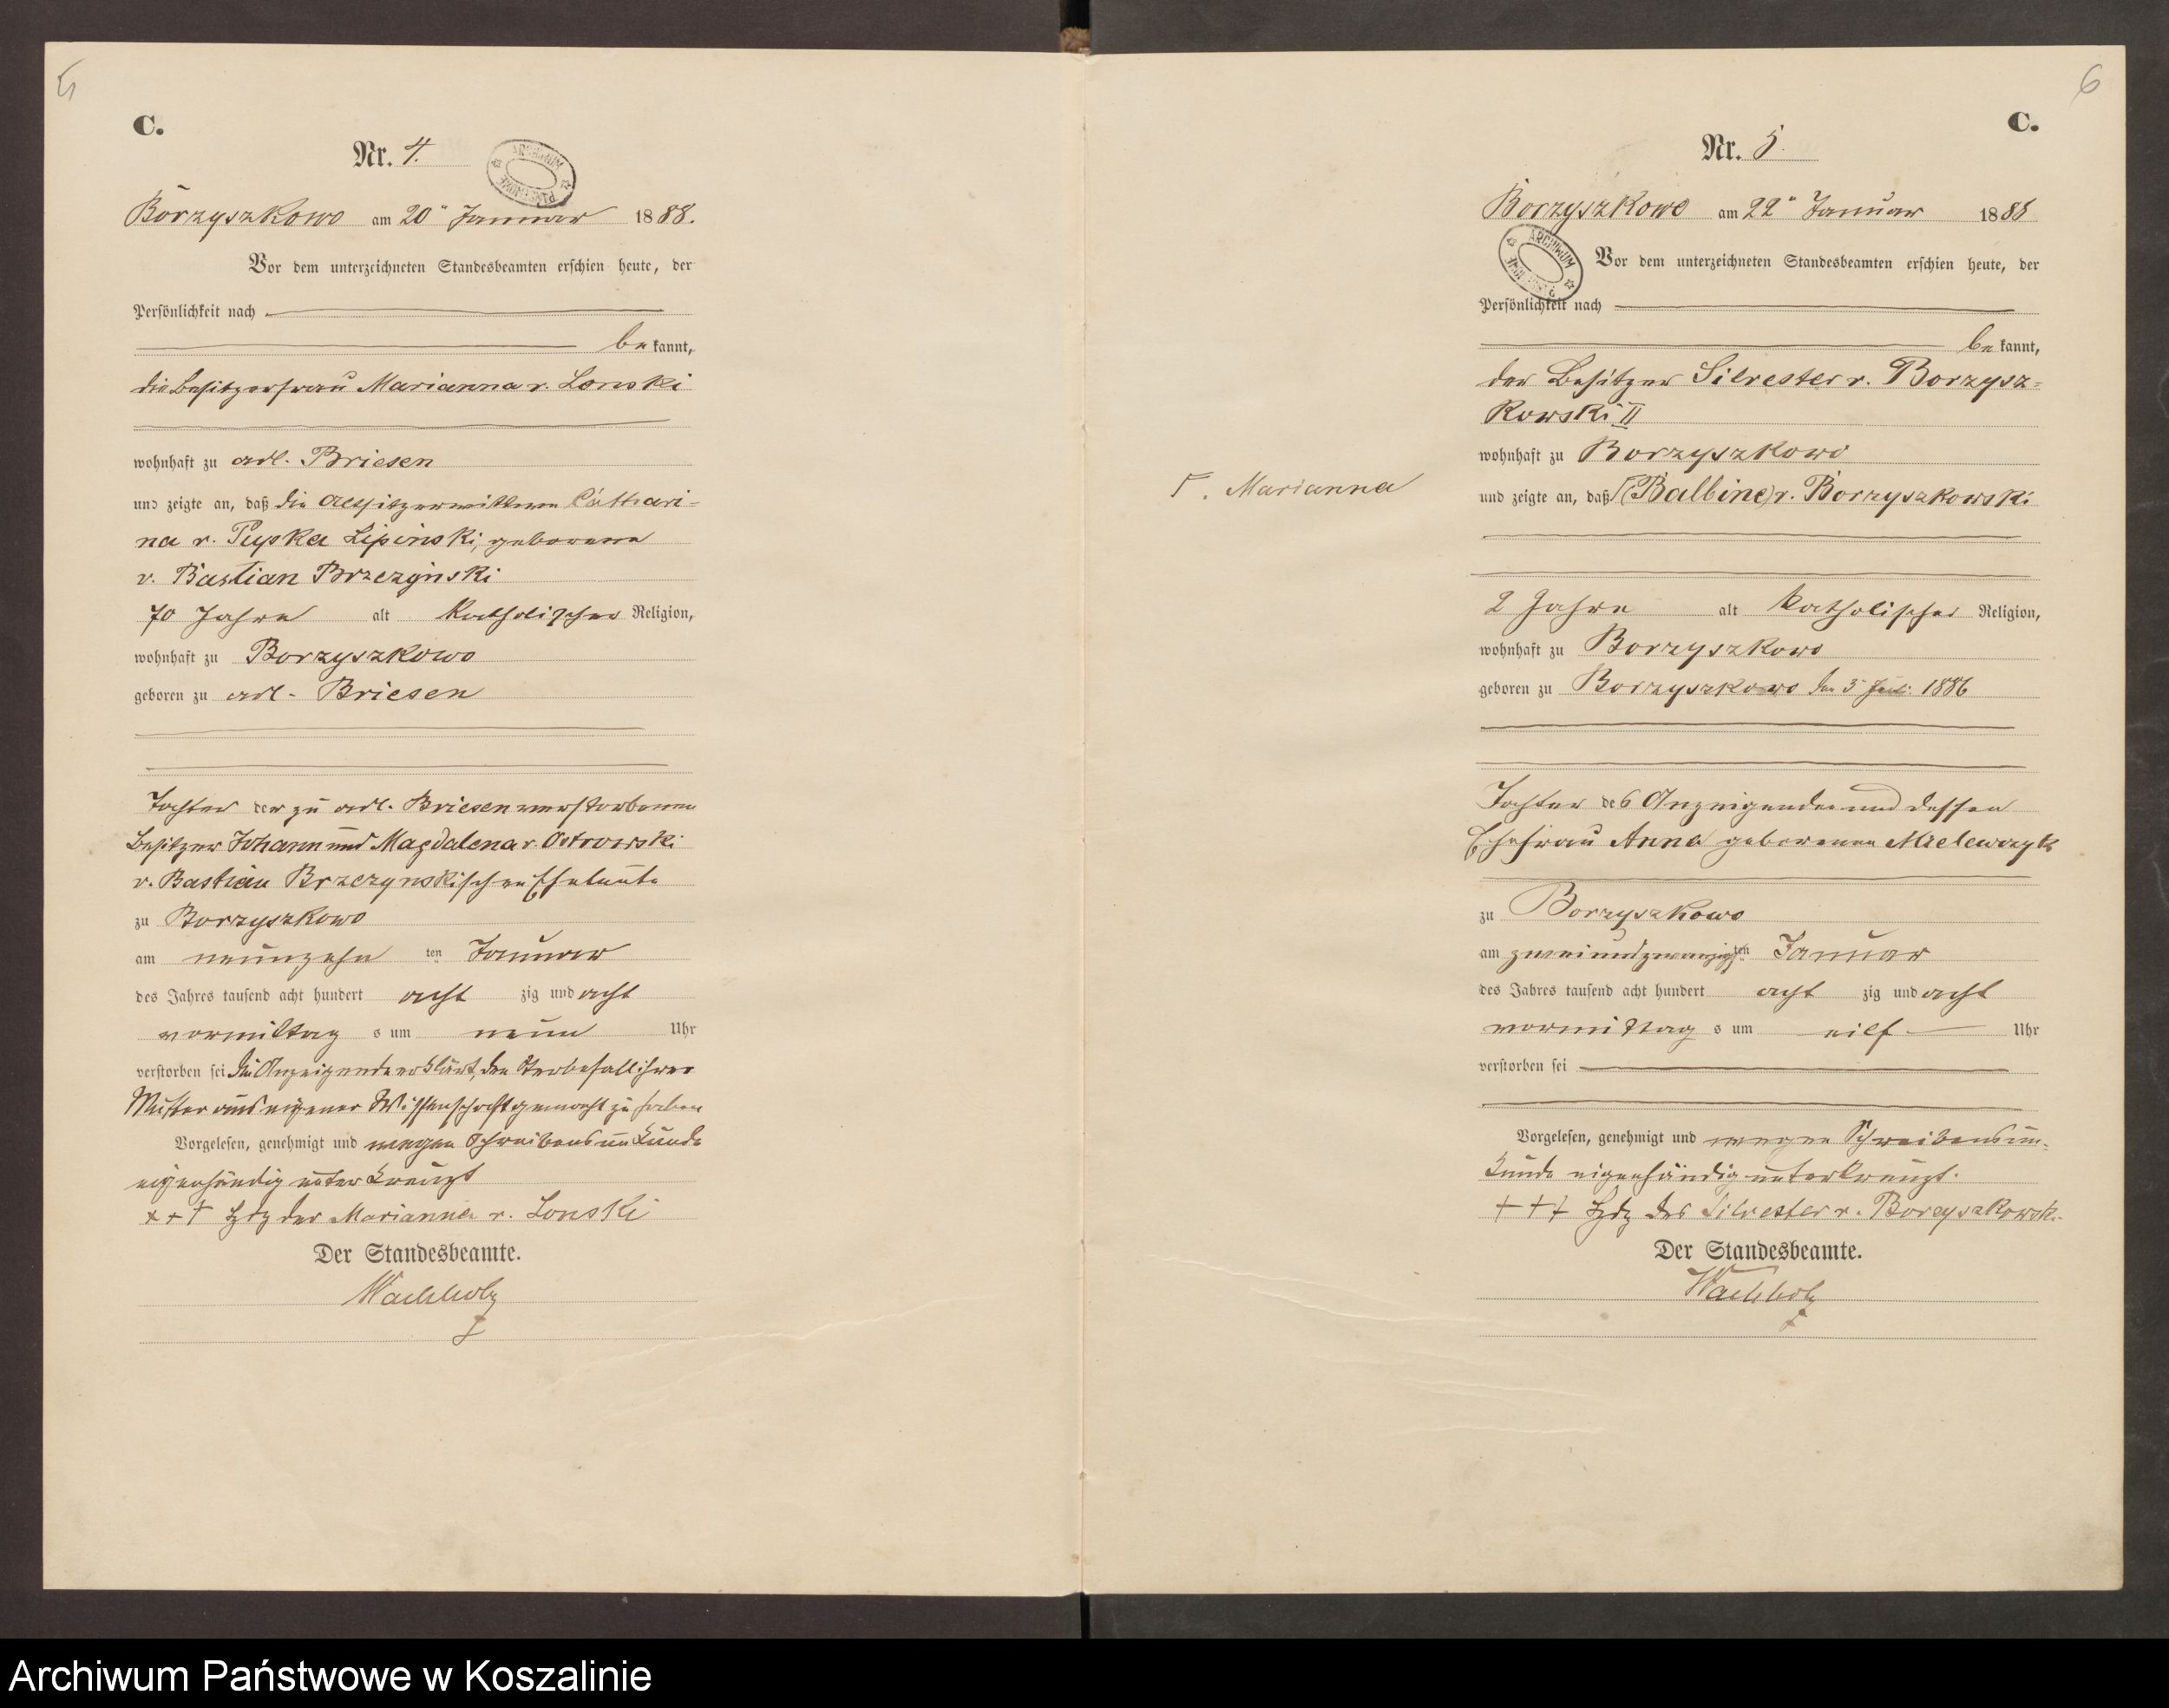 5
C.
Nr. 4.
ARCHIWUM PAŃSTWOWE
Borzyszkowo am 20ten Januar 1888.
Vor dem unterzeichneten Standesbeamten erschien heute, der
Persönlichkeit nach
be kannt,
die Besitzerfrau Marianna v. Lonski
wohnhaft zu adl. Briesen
und zeigte an, daß die Altsitzerwittwe Cathari-
na v. Pupka Lipinski, geborene
v. Bastian Brzezynski
70 Jahre alt katholischer Religion,
wohnhaft zu Borzyszkowo
geboren zu adl. Briesen
Tochter der zu adl. Briesen verstorbenen
Besitzer Johann und Magdalena v. Ostrowski
v. Bastian Brzezynskischen Eheleute
zu Borzyszkowo
am neunzehn ten Januar
des Jahres tausend acht hundert acht zig und acht
vormittag s um neun Uhr
verstorben sei Die Anzeigende erklärt, den Sterbefall ihrer
Mutter aus eigener Wissenschaft gemacht zu haben
Vorgelesen, genehmigt und wegen Schreibensunkunde
eigenhändig unterkreuzt
+ + + Hdz der Marianna v. Lonski
Der Standesbeamte.
Wachholz
6
C.
Nr. 5.
ARCHIWUM PAŃSTWOWE
Borzyszkowo am 22ten Januar 1888
Vor dem unterzeichneten Standesbeamten erschien heute, der
Persönlichkeit nach
be kannt,
der Besitzer Silvester v. Borzysz-
kowski II
wohnhaft zu Borzyszkowo
Γ. Marianna
und zeigte an, daß Γ(Balbine) v. Borzyszkowski
2 Jahre alt katholischer Religion,
wohnhaft zu Borzyszkowo
geboren zu Borzyszkowo den 3 1886
Tochter des Anzeigenden und dessen
Ehefrau Anna geborenen Mielewczyk
zu Borzyszkowo
am zweiundzwanzigsten Januar
des Jahres tausend acht hundert acht zig und acht
vormittag s um eilf Uhr
verstorben sei
Vorgelesen, genehmigt und wegen Schreibensun-
kunde eigenhändig unterkreuzt.
+ + + Hdz des Silvester v. Borzyszkowski
Der Standesbeamte.
Wachholz
Archiwum Państwowe w Koszalinie